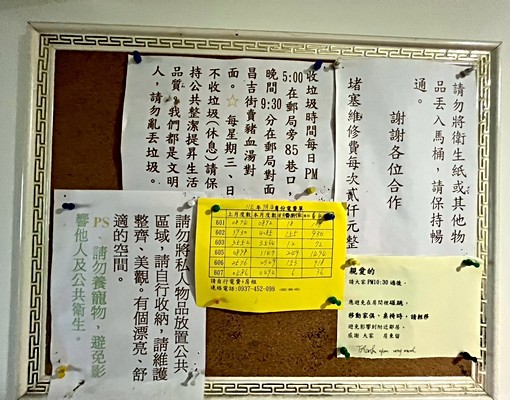 請勿將衛生紙或其他物
品丟入馬桶，請保持暢
通。
謝謝各位合作
堵塞維修費每次貳仟元整
收垃圾時間每日PM
5:00在郵局旁85巷口，
晚間9:30分在郵局對面
昌吉街賣豬血湯對
面。☆每星期三、日
不收垃圾(休息)請保
持公共整潔提昇生活
品質，我們都是文明
人，請勿亂丟垃圾。
請勿將私人物品放置公共
區域，請自行收納，請維護
整齊、美觀。有個漂亮、舒
適的空間。
PS、請勿養寵物，避免影
響他人及公共衛生。
月份電費單
上月度數 本月度數
601
602
603
605
606
607
請自行電費+房租
連絡電話:0937-452-099
親愛的
請大家PM10:30過後，
應避免在房間裡碰跳，
移動家俱、桌椅時，請輕移
避免影響到附近鄰居。
感謝 大家 房東留
Thank you very much